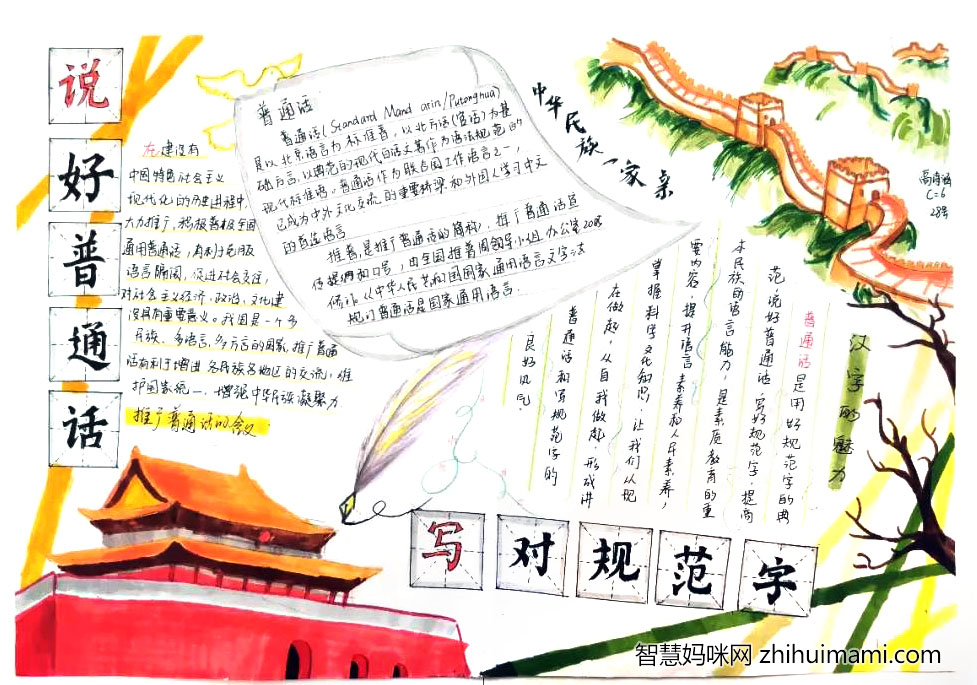 说
好
普
通
话
在建设有
中国特色社会主义
现代化的历史进程中,
大力推广,积极普及全国
通用普通话,有利于克服
语言隔阂,促进社会交往,
对社会主义经济、政治、文化建
设具有重要意义。我国是一个多
民族、多语言,多方言的国家,推广普通
话有利于增进各民族各地区的交流,维
护国家统一,增强中华民族凝聚力
推广普通话的含义
普通话
普通话(Standard Mandarin/Putonghua)
是以北京语言为标准音,以北方话(官话)为基
础方言,以典范的现代白话文著作为语法规范的
现代标准语。普通话作为联合国工作语言之一,
已成为中外文化交流的重要桥梁和外国人学习中文
的首选语言
推普是推广普通话的简称,推广普通话宣
传提纲和口号,由全国推普周领导小组办公室
从中华人民共和国国家通用语言文字法
规定普通话是国家通用语言.
中华民族一家亲
C-6
28号
汉字的魅力
普通话是用好规范字的典
范,说好普通话,写好规范字,提高
本民族的语言能力,是素质教育的重
要内容,提升语言素养和人民素养,
掌握科学文化知识,让我们从现
在做起,从自我做起,形成讲
普通话和写规范字的
良好风气.
写对规范字
智慧妈咪网 zhihuimami.com